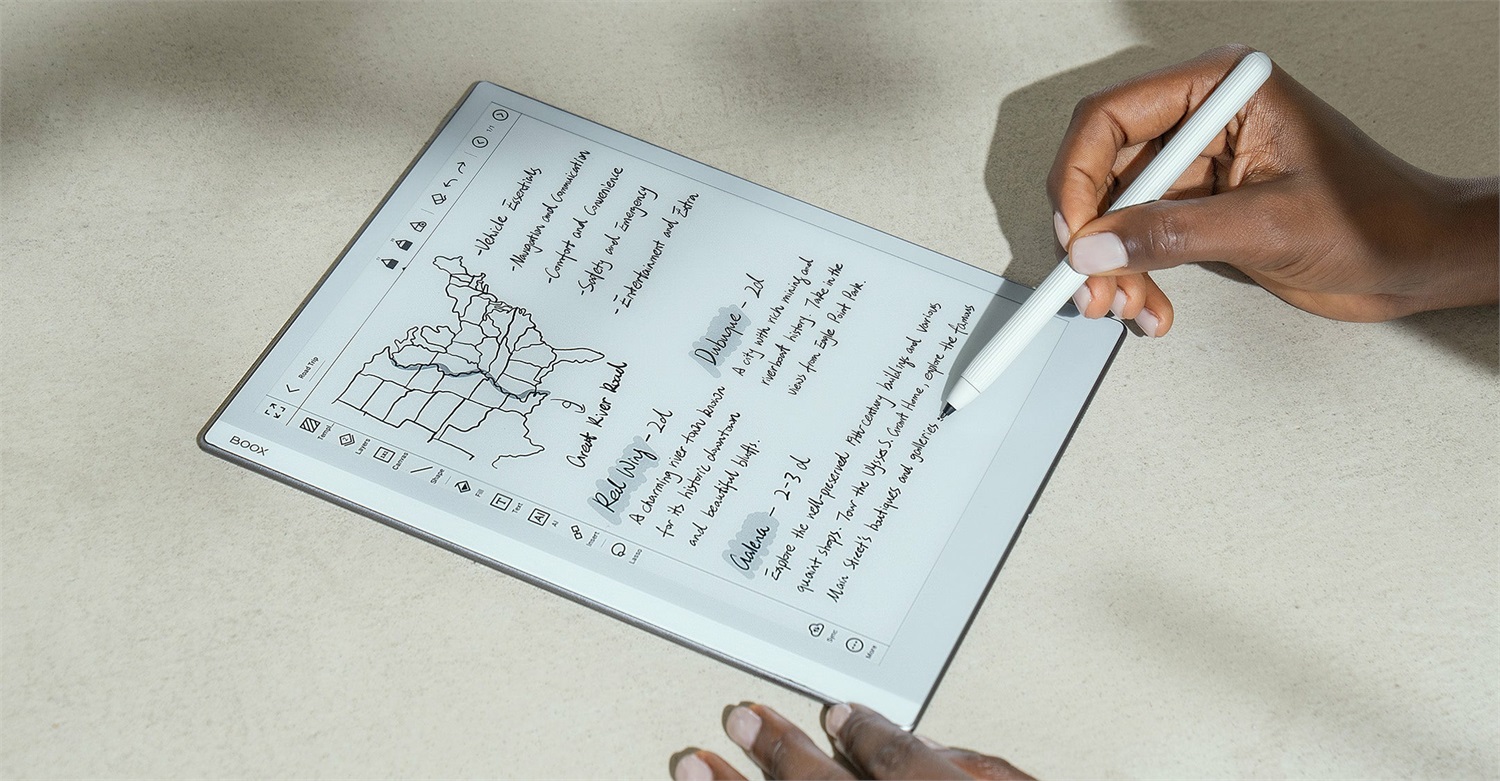 BOOX
Road Trip
1/1
Templ...
Layers
Canvas
Shape
Fill
Text
AI
Insert
Lasso
Sync
More
-Vehicle Essentials
-Navigation and Communication
-Comfort and Convenience
-Safety and Emergency
-Entertainment and Extra
Great River Road
Red Wing - 2d
A charming river town known
for its historic downtown
and beautiful bluffs.
Dubuque - 2d
A city with rich mining and
riverboat history. Take in the
views from Eagle Point Park.
Galena - 2-3 d
Explore the well-preserved 19th-century buildings and various
quaint shops. Tour the Ulysses S. Grant Home, explore the famous
Main Street's boutiques and galleries.